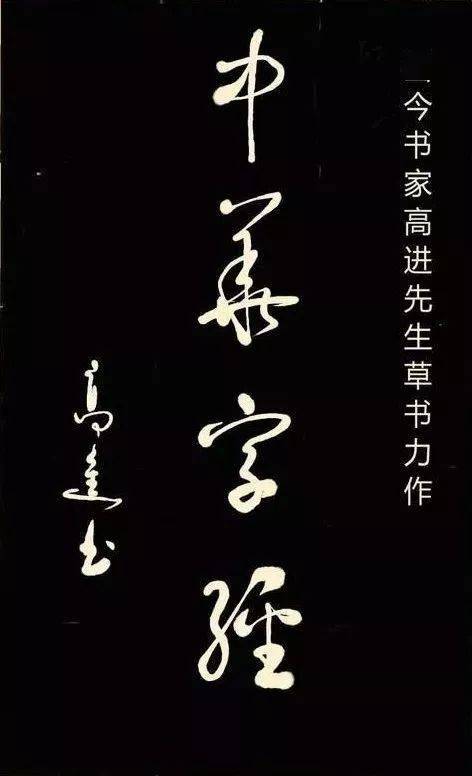 今书家高进先生草书力作
中華字經
高進书